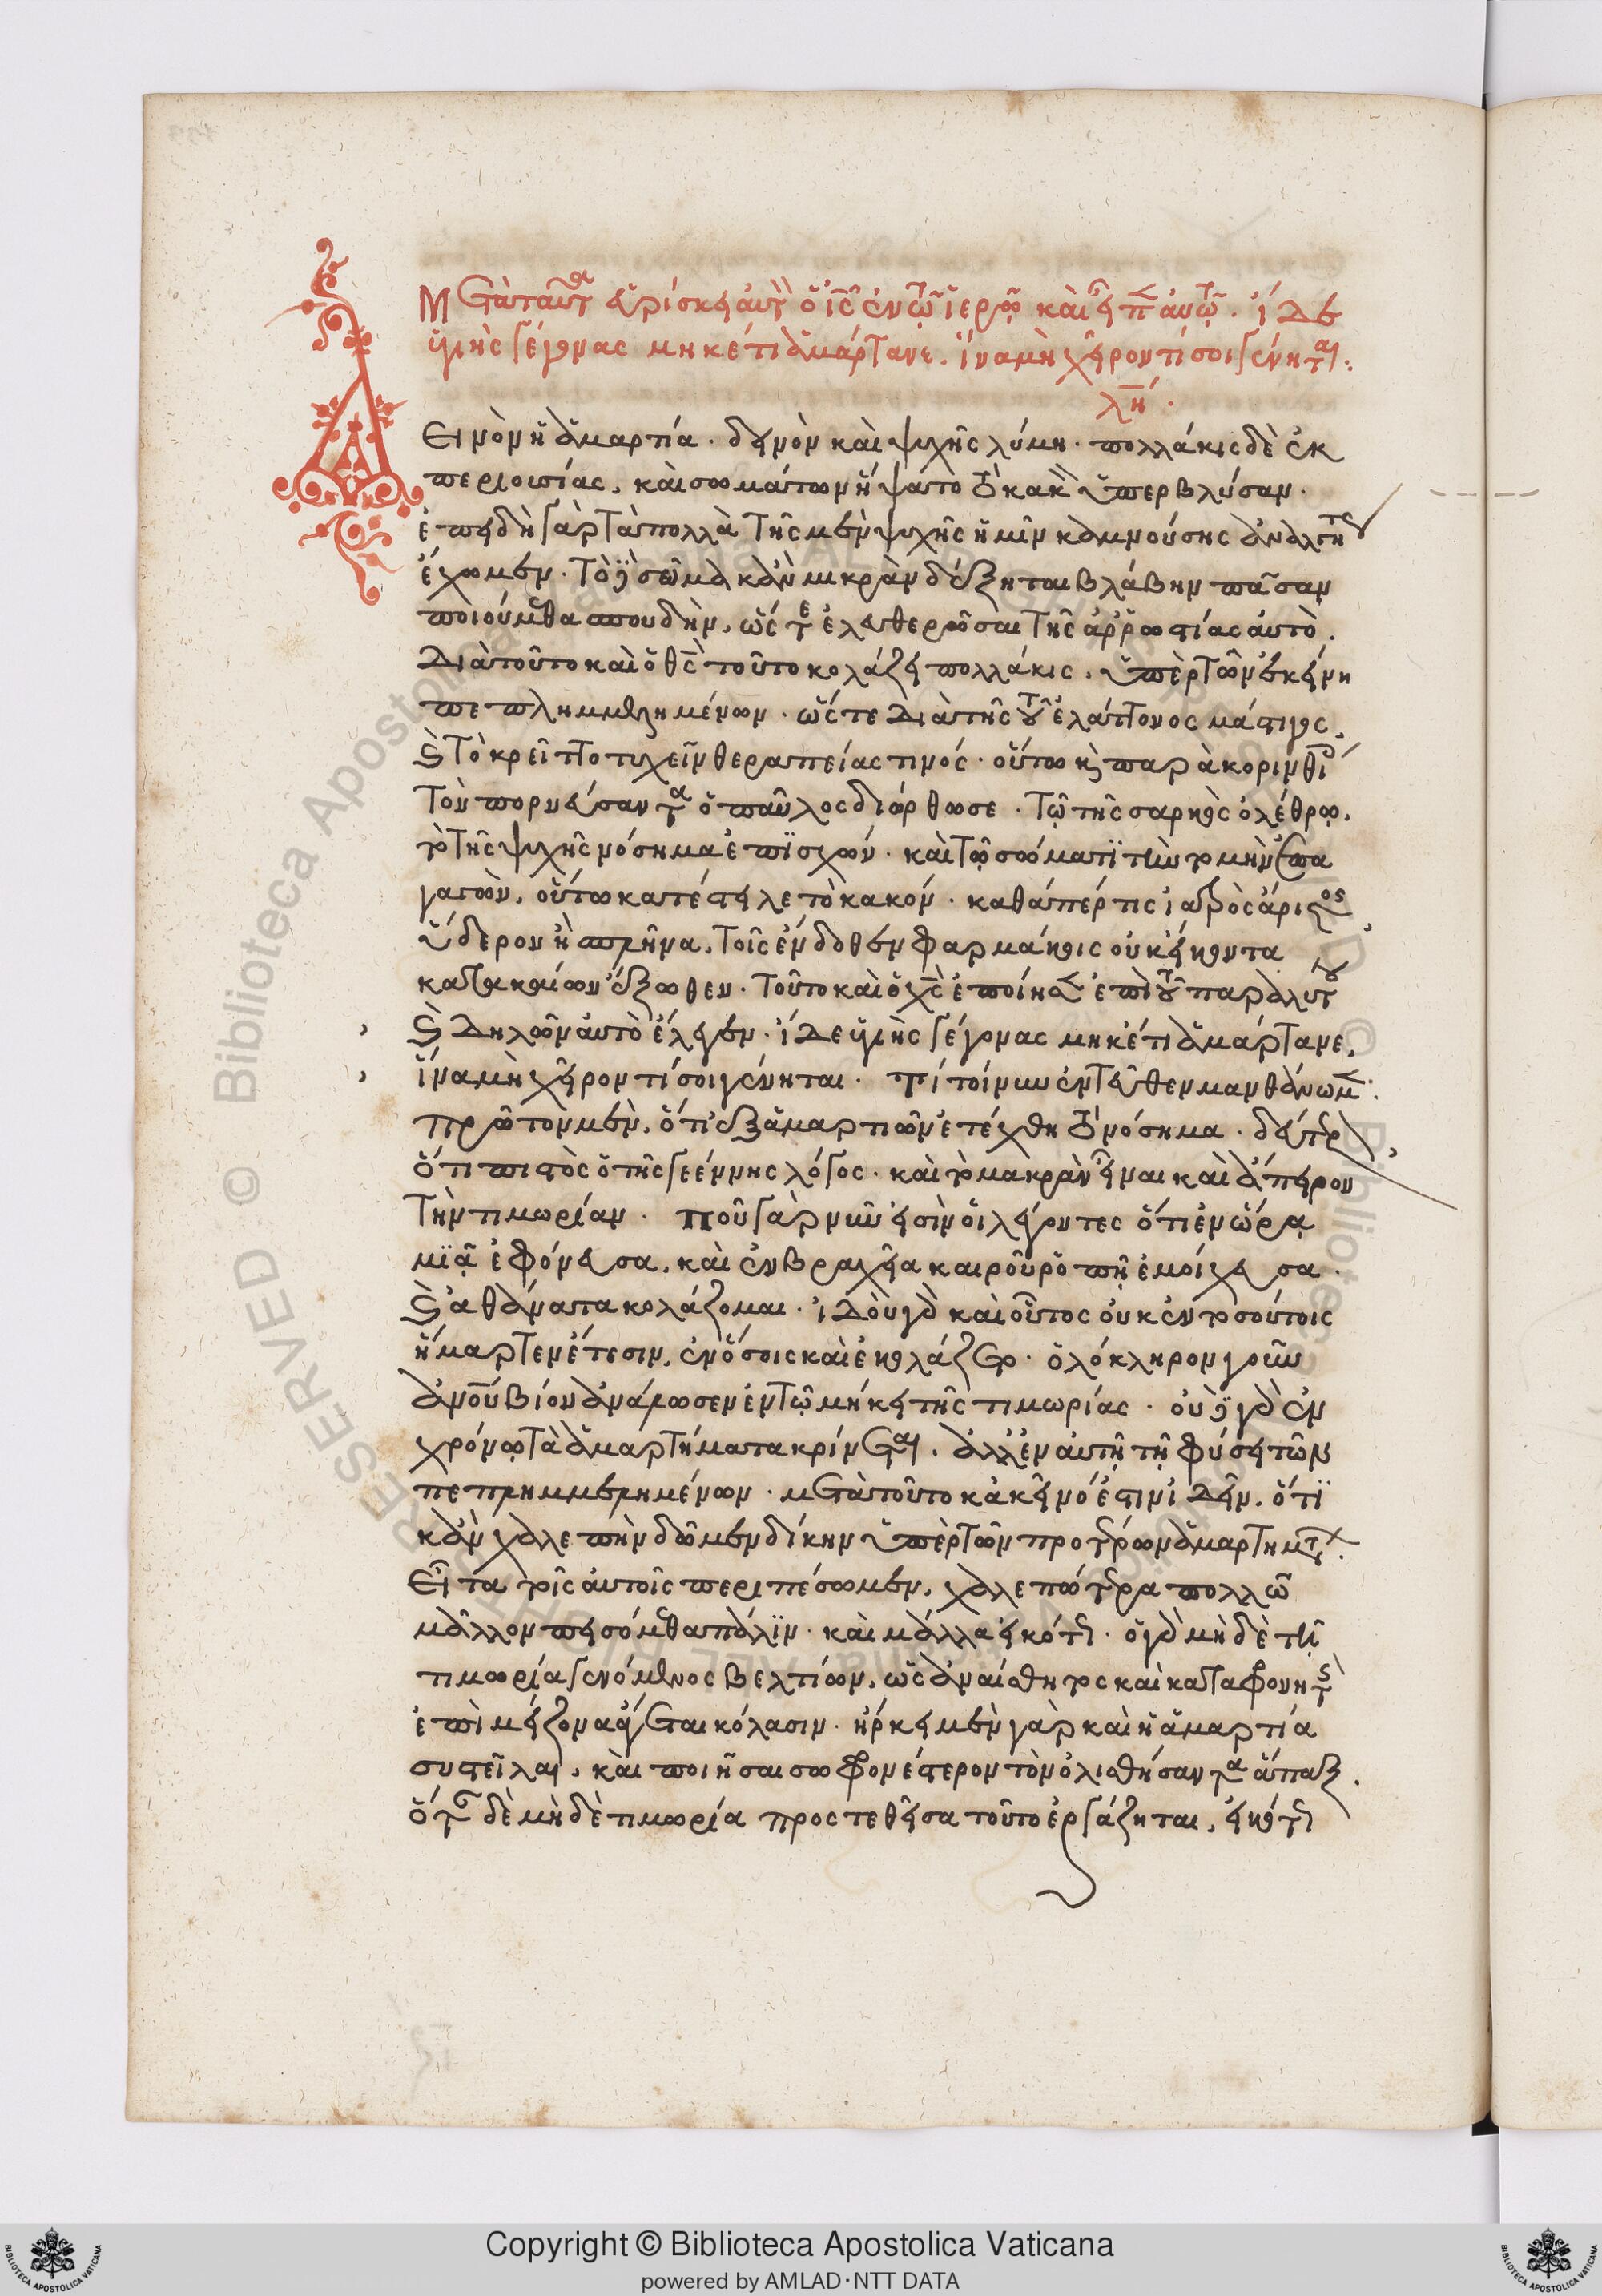 Μετὰ ταῦτα εὑρίσκει αὐτὸν ὁ ις ἐν τῷ ἱερῷ καὶ εἶπεν αὐτῷ. ἴδε
ὑγιὴς γέγονας μηκέτι ἁμάρτανε. ἵνα μὴ χεῖρον τί σοι γένηται.
λη.
Δεινὸν ἡ ἁμαρτία. δεινὸν καὶ ψυχῆς λύμη. πολλάκις δὲ ἐκ
περιουσίας, καὶ σωμάτων ἥψατο τὸ κακὸν ὑπερβλύσαν.
ἐπειδὴ γὰρ τὰ πολλὰ τῆς μὲν ψυχῆς ἡμῖν καμνούσης ἀναλγήτως
ἔχομεν. τὸ δὲ σῶμα κἂν μικρὰν δέξηται βλάβην πᾶσαν
ποιούμεθα σπουδὴν, ὥστε ἐλευθερῶσαι τῆς ἀρρωστίας αὐτὸ.
Διὰ τοῦτο καὶ ὁ θς τοῦτο κολάζει πολλάκις, ὑπὲρ τῶν ἐκείνη
πεπλημμελημένων. ὥστε διὰ τῆς τοῦ ἐλάττονος μάστιγος,
καὶ τὸ κρεῖττο τυχεῖν θεραπείας τινός. οὕτω καὶ παρὰ κορινθίοις
τὸν πορνεύσαντα ὁ παῦλος διώρθωσε. τῷ τῆς σαρκὸς ὀλέθρῳ,
τὸ τῆς ψυχῆς νόσημα ἐπισχών. καὶ τῷ σώματι τὴν τομὴν ἐπα
γαγών, οὕτω κατέστειλε τὸ κακόν. καθάπέρ τις ἰατρὸς ἄριστος
ὕδερον ἢ σπλῆνα, τοῖς ἔνδοθεν φαρμάκοις οὐκ εἴκοντα
καυτηριάζων ἔξωθεν. τοῦτο καὶ ὁ χς ἐποίησεν ἐπὶ τοῦ παραλύτου
καὶ δηλῶν αὐτὸ ἔλεγεν. ἴδε ὑγιὴς γέγονας μηκέτι ἁμάρτανε,
ἵνα μὴ χεῖρον τί σοι γένηται. τί τοίνυν ἐντεῦθεν μανθάνομεν.
πρῶτον μὲν, ὅτι ἐξ ἁμαρτιῶν ἐτέχθη τὸ νόσημα. δεύτερον,
ὅτι πιστὸς ὁ τῆς γεέννης λόγος. καὶ τὸ μακρὰν εἶναι καὶ ἄπειρον
τὴν τιμωρίαν. ποῦ γὰρ νῦν εἰσὶν οἱ λέγοντες ὅτι ἐν ὥρᾳ
μιᾷ ἐφόνευσα, καὶ ἐν βραχεῖα καιροῦ ῥοπῇ ἐμοίχευσα.
καὶ ἀθάνατα κολάζομαι. ἰδοὺ γὰρ καὶ οὗτος οὐκ ἐν τοσούτοις
ἥμαρτεν ἔτεσιν, ἐν ὅσοις καὶ ἐκολάζετο. ὁλόκληρον γοῦν
ἀνοῦ βίον ἀνάλωσεν ἐν τῷ μήκει τῆς τιμωρίας. οὐ γὰρ ἐν
χρόνῳ τὰ ἁμαρτήματα κρίνεται, ἀλλ' ἐν αὐτῇ τῇ φύσει τῶν
πεπλημμελημένων. μετὰ τοῦτο κἀκεῖνό ἐστιν ἰδεῖν, ὅτι
κἂν χαλεπὴν δῶμεν δίκην ὑπὲρ τῶν προτέρων ἁμαρτημάτων.
εἶτα τοῖς αὐτοῖς περιπέσωμεν, χαλεπώτερα πολλῶ
μᾶλλον πεισόμεθα πάλιν. καὶ μάλα εἰκότως. ὁ γὰρ μηδὲ τῇ
τιμωρία γενόμενος βελτίων, ὡς ἀναίσθητος καὶ καταφρονητὴς
ἐπὶ μείζονα ἄγεται κόλασιν. ἤρκει μὲν γὰρ καὶ ἡ ἁμαρτία
συστεῖλαι, καὶ ποιῆσαι σωφρονέστερον τὸν ὀλισθήσαντα ἅπαξ.
ὅταν δὲ μηδὲ τιμωρία προστεθεῖσα τοῦτο ἐργάζηται, εἰκότως
Copyright © Biblioteca Apostolica Vaticana
powered by AMLAD·NTT DATA